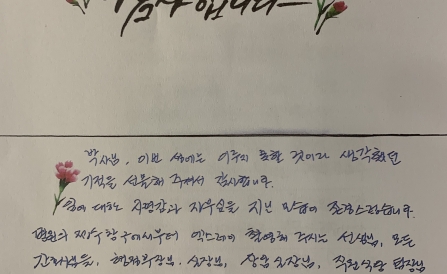 감사합니다
박사님, 이번 생에는 이루지 못할 것이라 생각했던
기적을 선물해 주셔서 감사합니다.
대한 사명감과 자부심을 지닌 모습이 존경스럽습니다.
병원의 접수창구에서부터 엑스레이 촬영해 주시는 선생님, 모든
간호사님들, 행정부장님, 실장님, 실장님, 직원식당